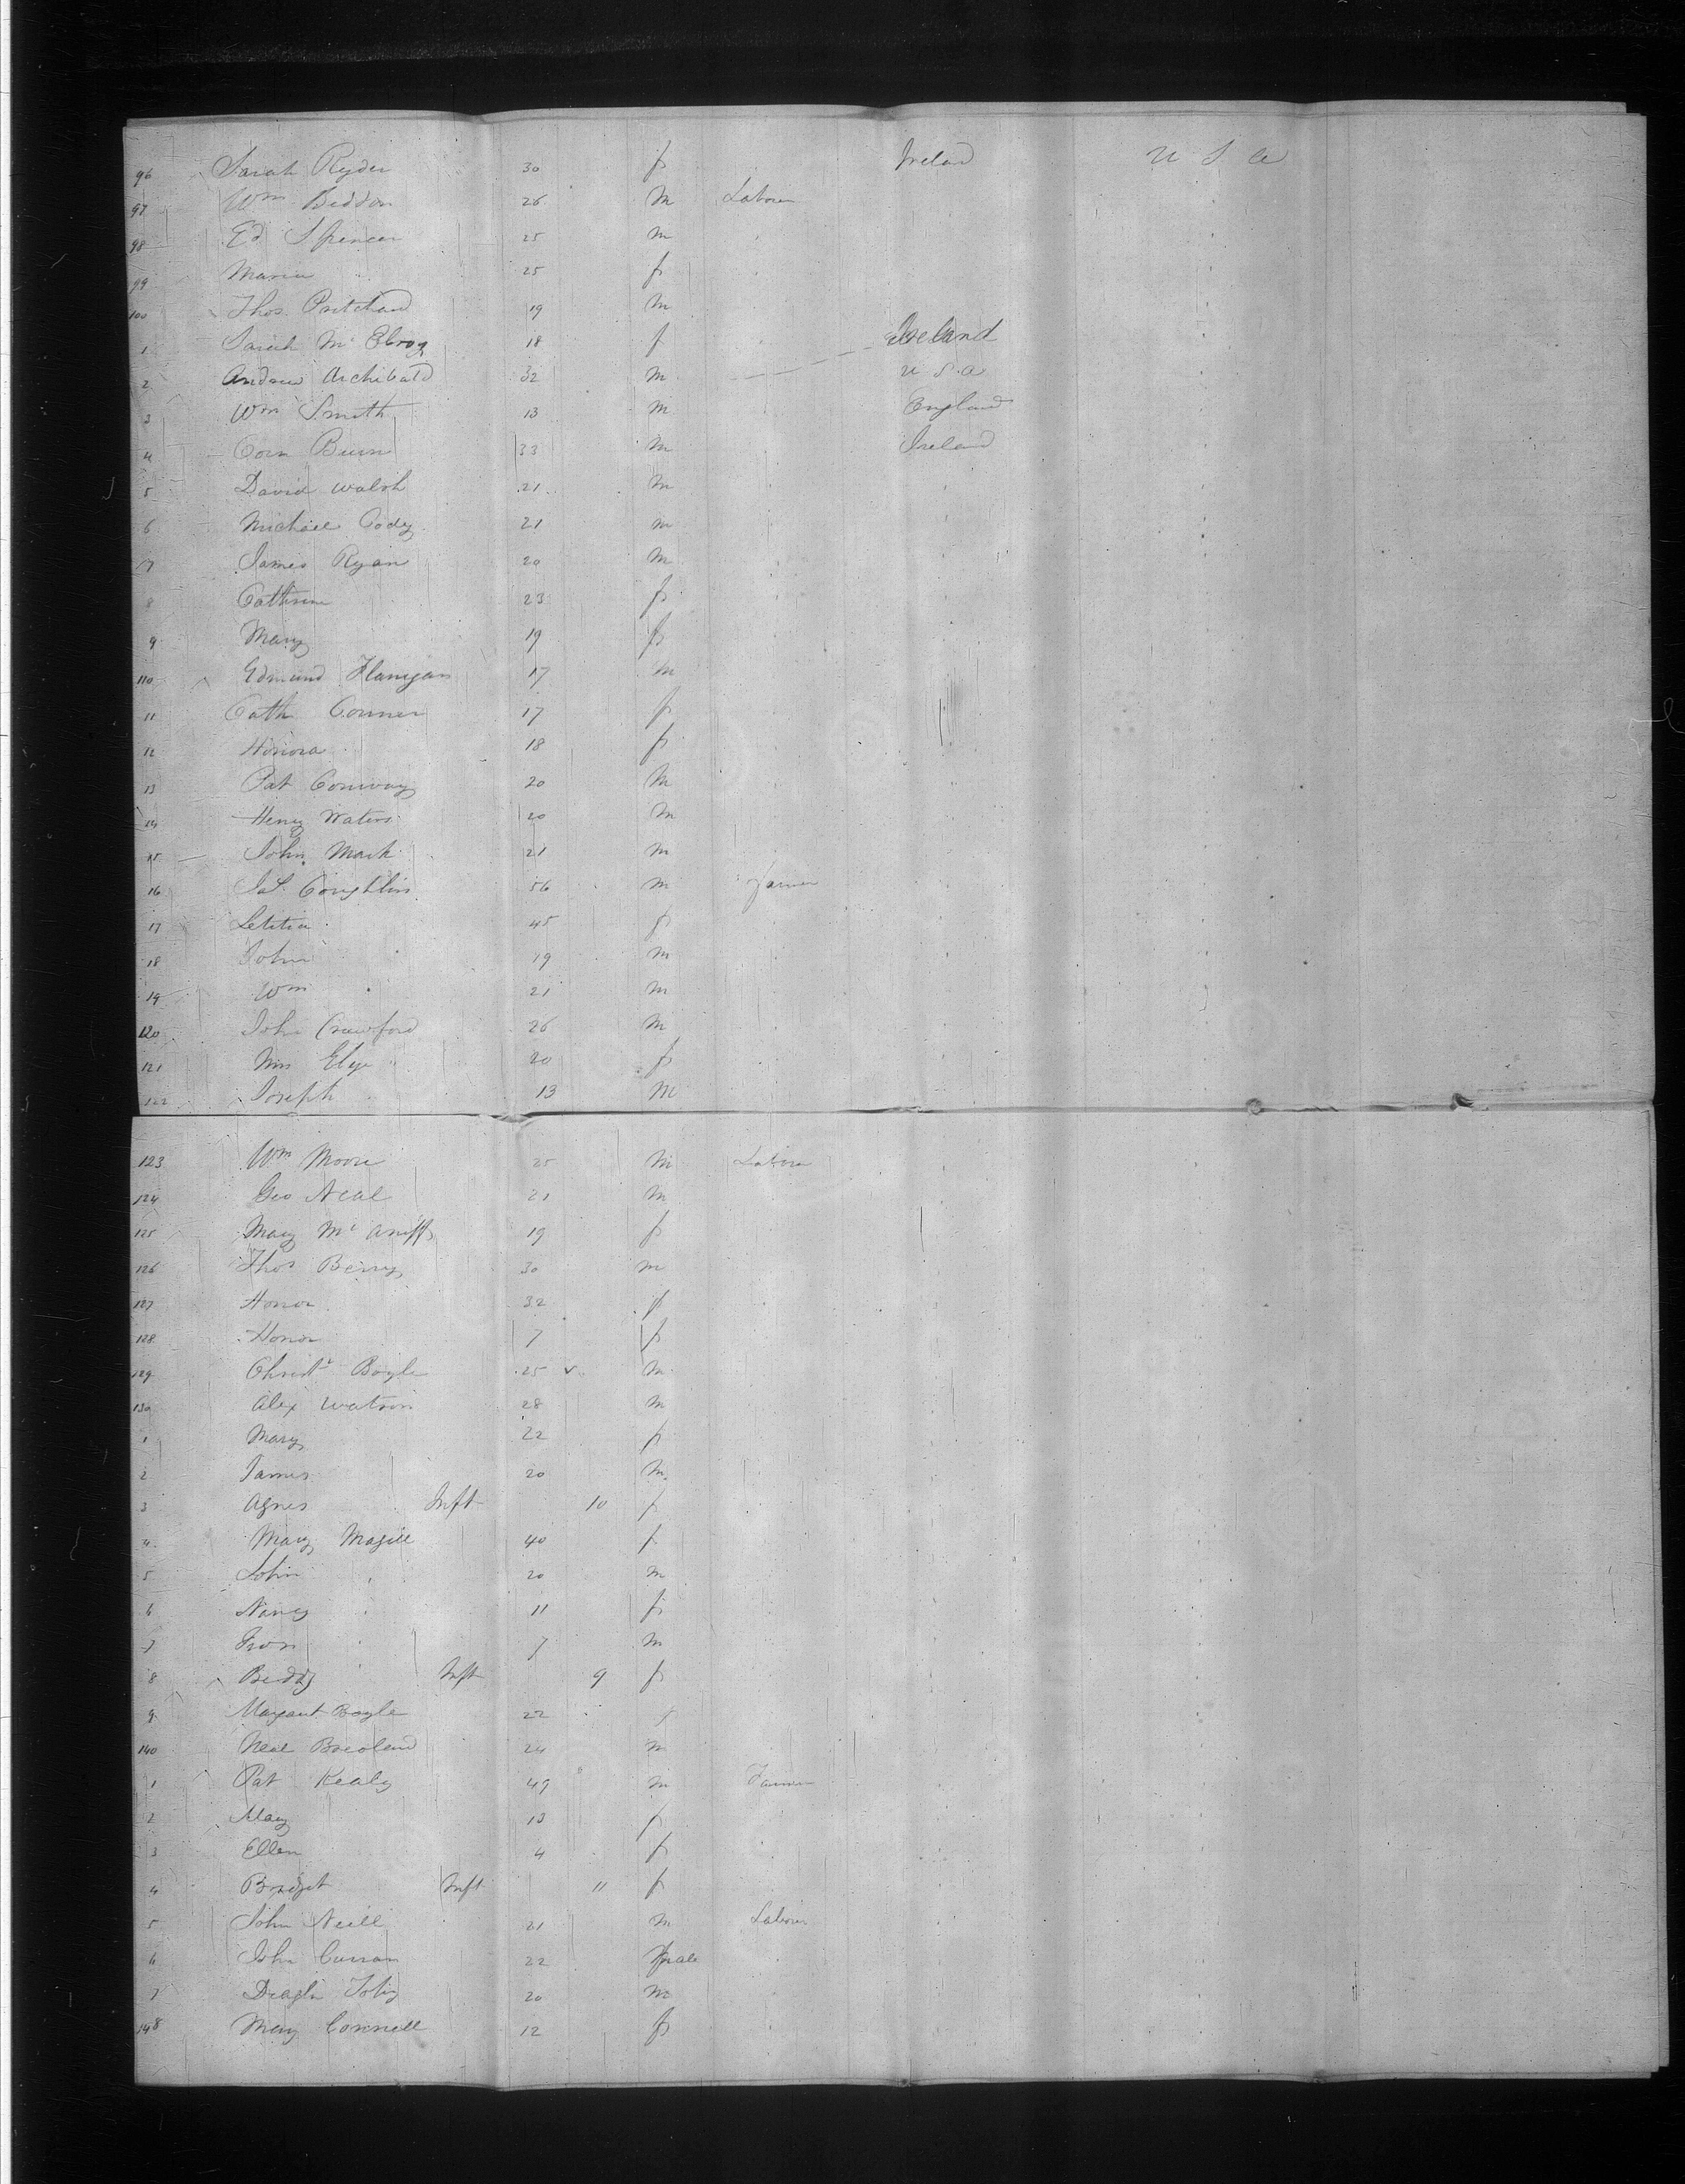 96 Sarah Ryder 30 f Ireland U S A
97 Wm Beddon 26 M Laborer
98 Ed Spencer 25 m
99 Maria 25 f
100 Thos. Pritchard 19 m
1 Sarah Mc Elroy 18 f Ireland
2 Andrew Archibald 32 m U S A
3 Wm Smith 13 m England
4 Corn 33 m Ireland
5 David Walsh 21 m
6 Michael Cody 21 m
7 James Ryan 20 m
8 Cathrine 23 f
9 Mary 19 f
110 Edmund Flanigan 17 m
11 Cath Conner 17 f
12 Honora 18 f
13 Pat Conway 20 M
14 Henry Waters 20 m
15 John Mark 21 m
16 Jas. Coughlin 56 m Farmer
17 Letitia 45 f
18 John 19 m
19 Wm 21 m
120 John Crawford 26 m
121 Mrs 20 f
122 Joseph 13 M
123 Wm Moore 25 M Laborer
124 Geo Neal 21 m
125 Mary Mc Aniff 19 f
126 Thos Berry 30 m
127 Honor 32 f
128 Honor 7 f
129 Christr Boyle 25 m
130 Alex Watson 28 m
1 Mary 22 f
2 James 20 m
3 Agnes Inft 10 f
4 Mary Magill 40 f
5 John 20 m
6 Nancy 11 f
7 7 m
8 Biddy Inft 9 f
9 Margaret Boyle 22 f
140 Neal 24 m
1 Pat Kealy 49 m Farmer
2 Mary 13 f
3 Ellen 4 f
4 Bridget Inft 11 f
5 John Neill 21 m Laborer
6 John Curran 22 male
7 20 m
148 Mary Connell 12 f